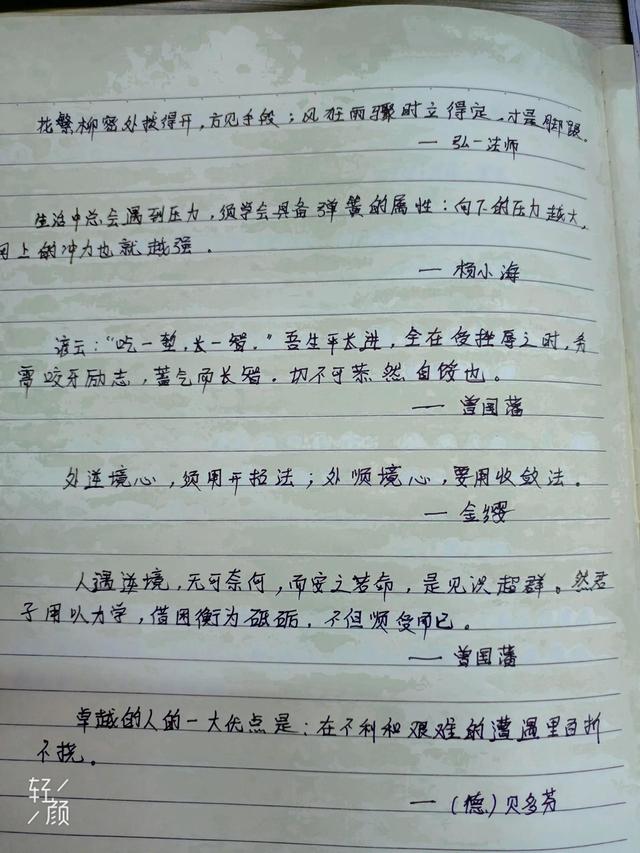 花繁柳密处拨得开，方见手段；风狂雨骤时立得定，才是脚跟。
— 弘一法师
生活中总会遇到压力，须学会具备弹簧的属性：向下的压力越大，
向上的冲力也就越强。
— 杨小海
谚云："吃一堑，长一智。"吾生平长进，全在受挫辱之时，务
需咬牙励志，蓄气而长智，切不可恭然自馁也。
— 曾国藩
处逆境心，须用开拓法；处顺境心，要用收敛法。
— 金缨
人遇逆境，无可奈何，而安之若命，是见识超群。然君
子用以力学，借困衡为砥砺，不但顺受而已。
— 曾国藩
卓越的人的一大优点是：在不利和艰难的遭遇里百折
不挠。
— （德）贝多芬
轻颜